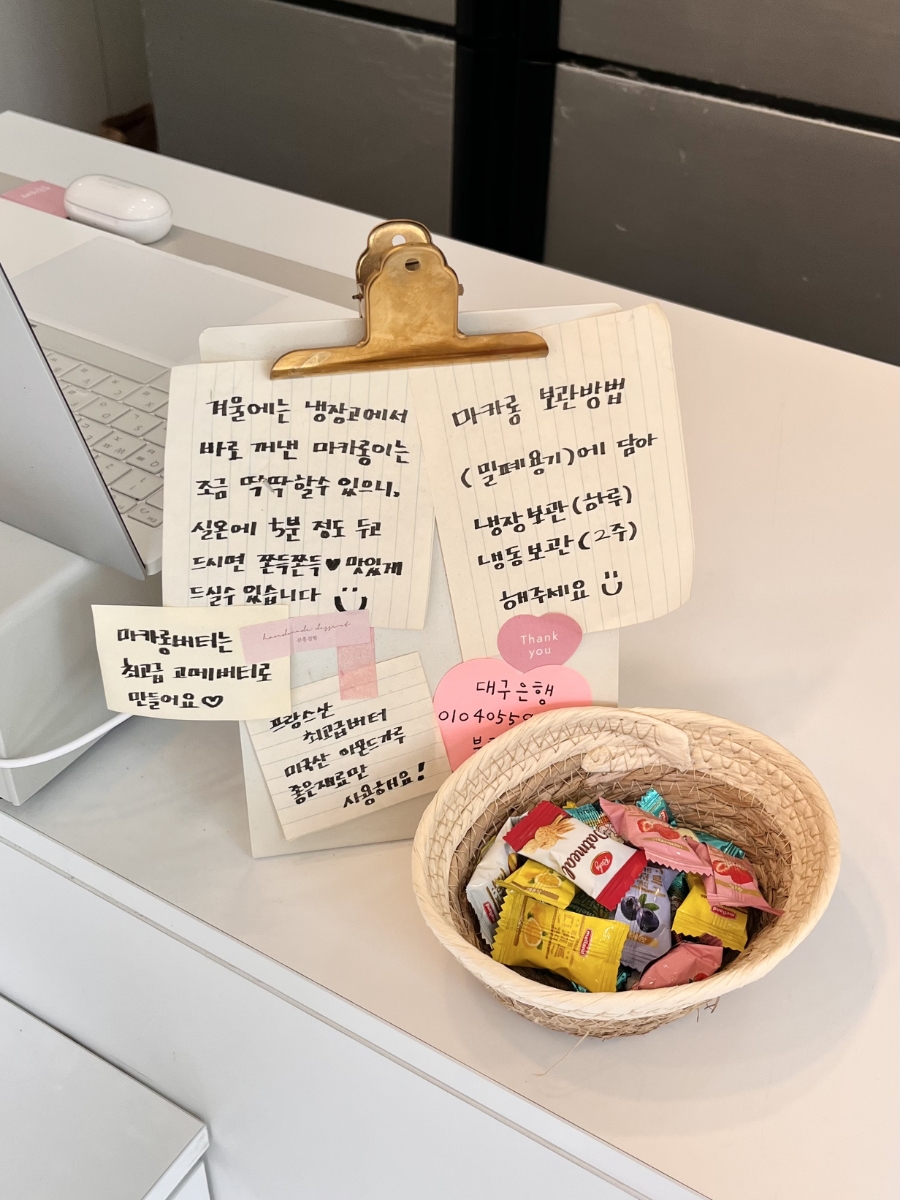 겨울에는 냉장고에서
바로 꺼낸 마카롱이는
조금 딱딱할수 있으니,
실온에 5분 정도 두고
드시면 쫀득쫀득♥맛있게
드실수 있습니다
마카롱 보관방법
(밀폐용기)에 담아
냉장보관(하루)
냉동보관(2주)
해주세요
마카롱버터는
최고급 고메버터로
만들어요♡
handmade dessert
프랑스산
최고급버터
미국산 아몬드가루
좋은재료만
사용해요!
Thank
you
대구은행
0104055
Oatmeal